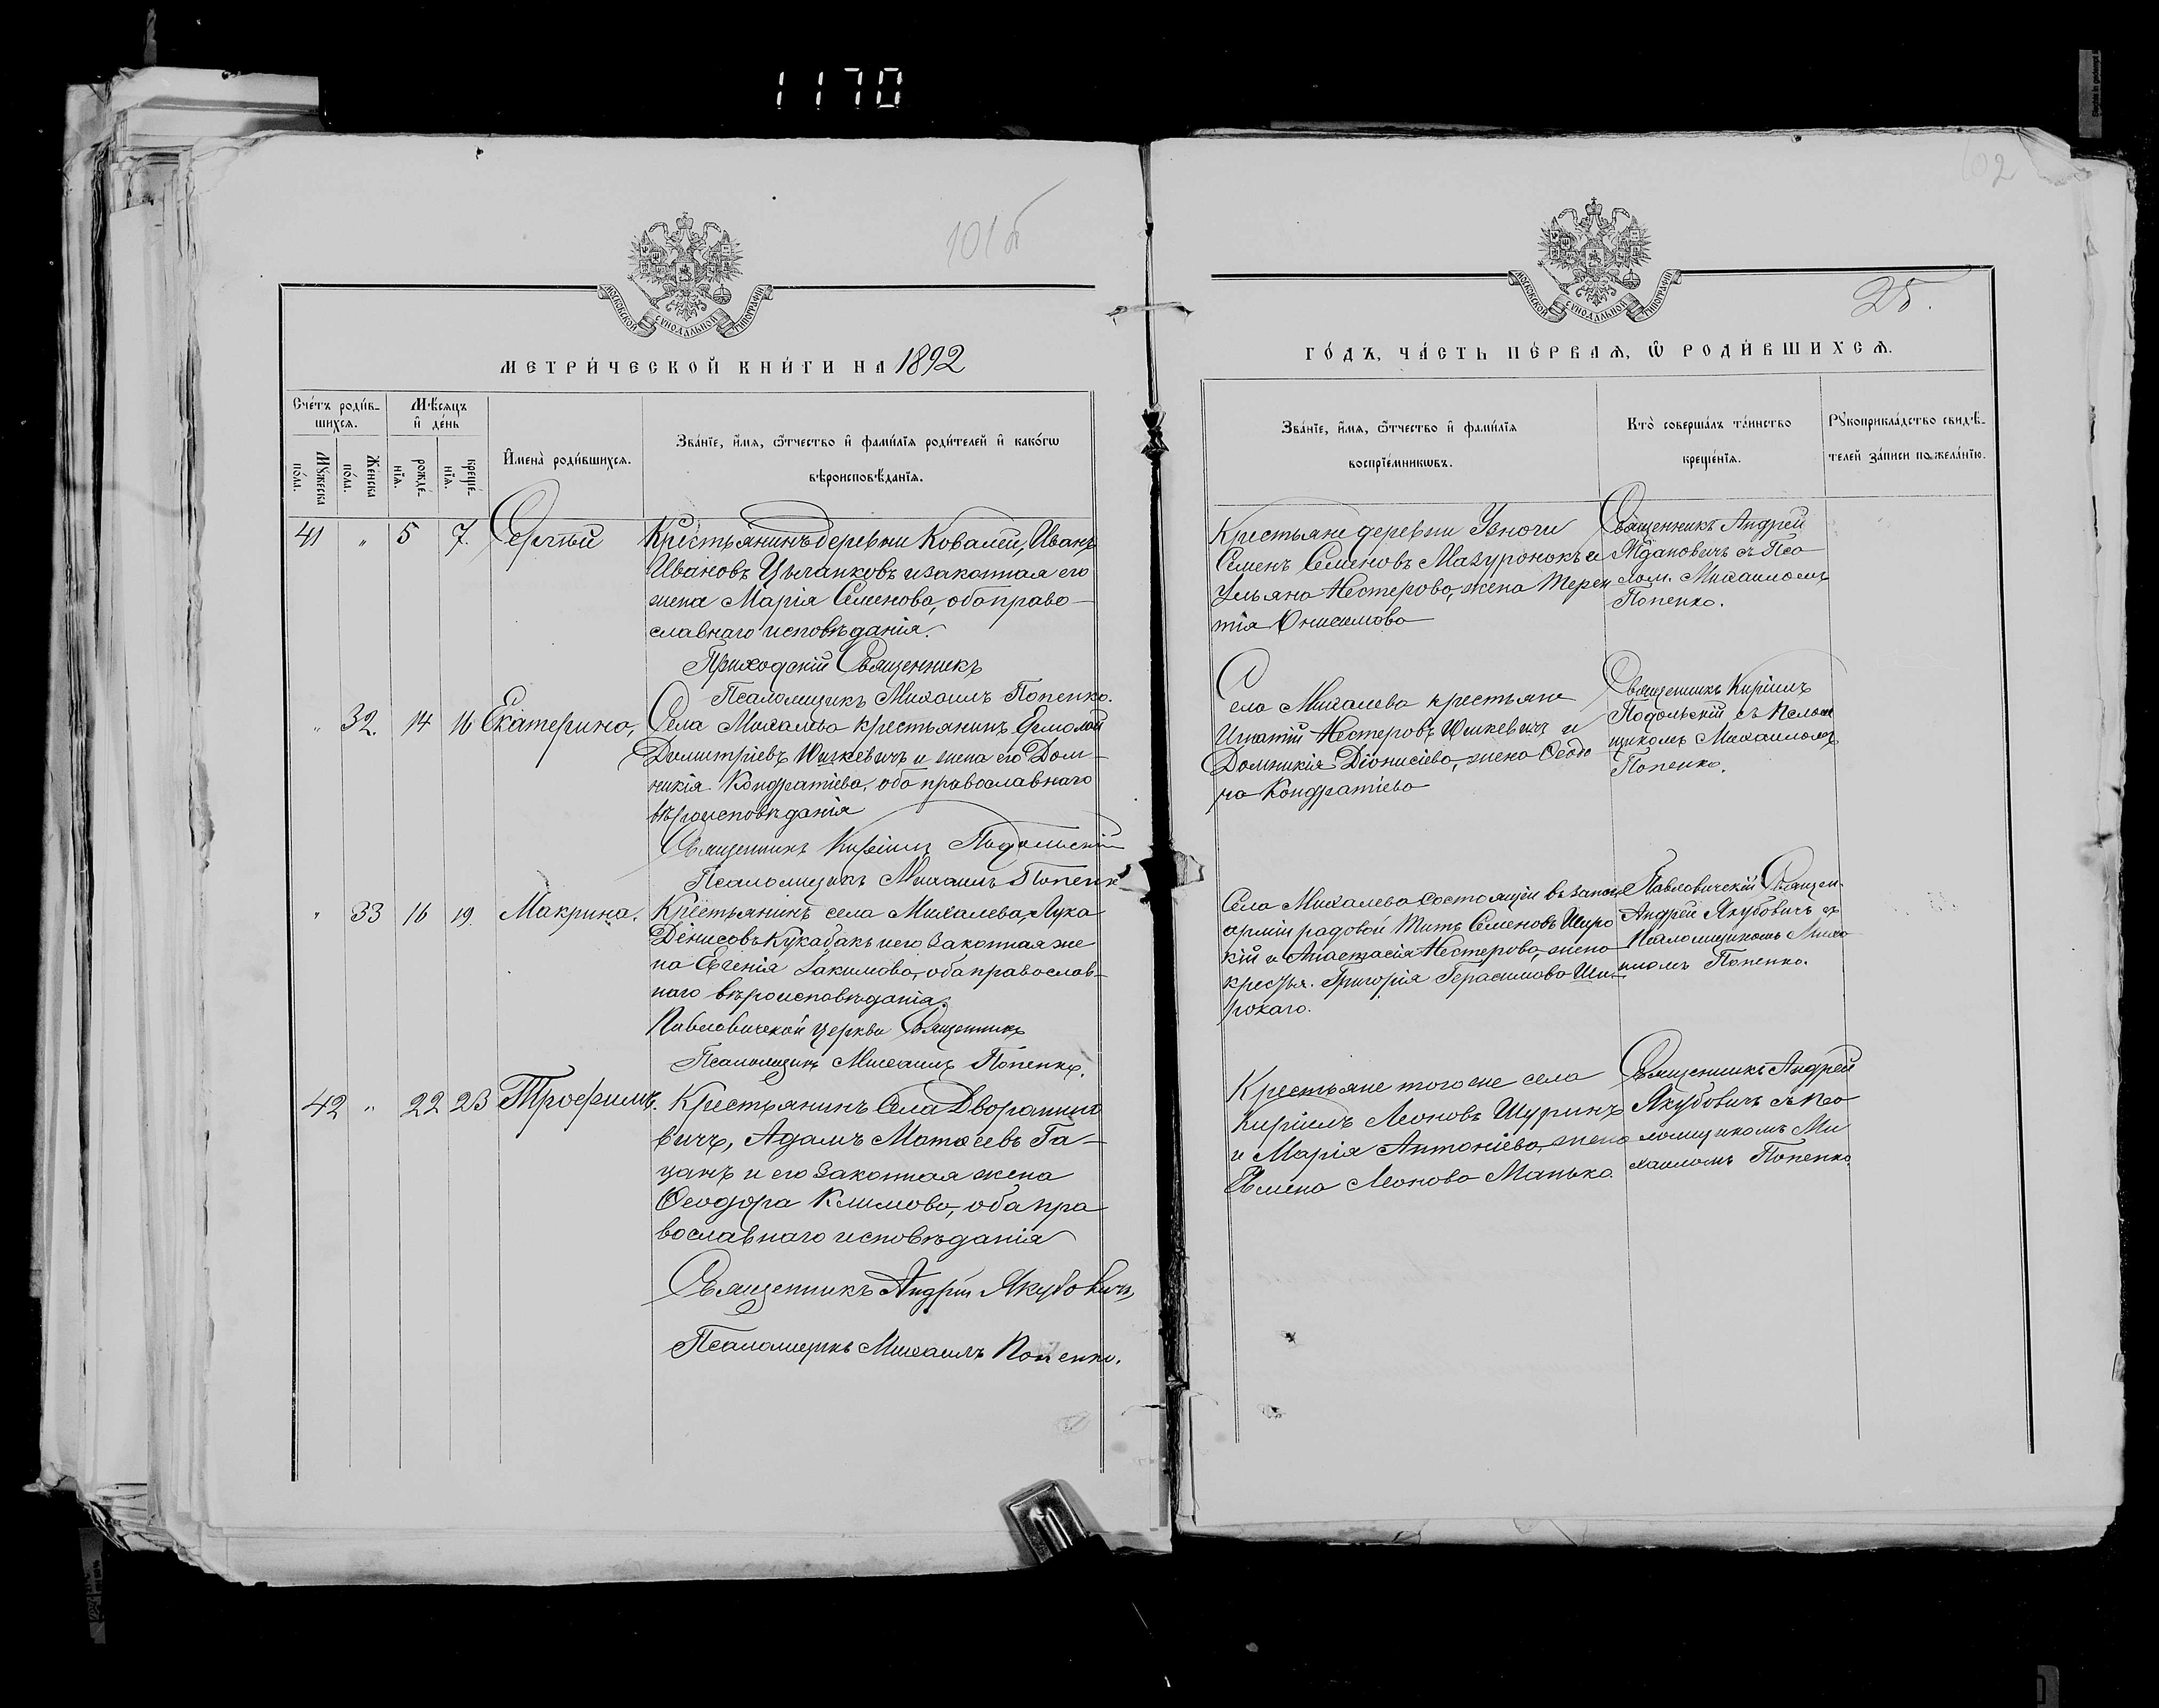 1170
101б
102
МОСКОВСКОЙ СѴНОДАЛЬНОЙ ТИПОГРАФІИ
МЕТРИ́ЧЕСКОЙ КНИ́ГИ НА 1892
Сче́тъ роди́в-
шихсѧ.
Мѣ́сѧцъ
и҆ де́нь
Мꙋ́жеска
по́ла.
Же́нска
по́ла.
рожде́-
нїѧ.
креще́-
нїѧ.
И҆мена̀ роди́вшихсѧ.
Зва́нїе, и҆́мѧ, ѻ҆́тчество и҆ фами́лїѧ роди́телей и҆ како́гѡ
вѣроисповѣ́данїѧ.
41 " 5 7. Сергѣй Крестьянинъ деревни Ковалей, Иванъ
Ивановъ Цыганковъ и законная его
жена Марія Семенова, оба право-
славнаго исповѣданія.
Приходскій Священникъ
Псаломщикъ Михаилъ Попенко.
" 32. 14 16 Екатерина, Села Михалева крестьянинъ Ермолай
Димитріевъ Юшкевичъ и жена его Дом-
никія Кондратіева, оба православнаго
вѣроисповѣданія
Священникъ Кириллъ Подольскій
Псаломщикъ Михаилъ Попенк
" 33 16 19. Макрина. Крестьянинъ села Михалева, Лука
Денисовъ Кукабакъ и его Законная же
на Евгенія Іакимова, оба православ-
наго вѣроисповѣданія.
Павловичской церкви Священникъ
Псаломщикъ Михаилъ Попенко.
42 " 22 23 Трофимъ. Крестьянинъ Села Дворанино
вичъ, Адамъ Матѳеевъ Га-
цанъ и его Законная жена
Ѳеодора Климова, оба пра
вославнаго исповѣданія
Священникъ Андрей Якубовичъ,
Псаломщикъ Михаилъ Попенко.
МОСКОВСКОЙ СѴНОДАЛЬНОЙ ТИПОГРАФІИ
25.
ГО́ДЪ, ЧА́СТЬ ПЕ́РВАѦ, Ѿ РОДИ́ВШИХСѦ.
Зва́нїе, и҆́мѧ, ѻ҆́тчество и҆ фами́лїѧ
воспрїе́мникѡвъ.
Кто̀ соверша́лъ та́инство
креще́нїѧ.
Рꙋкоприкла́дство свидѣ́-
телей за́писи по жела́нїю.
Крестьяне деревни Узночи
Семенъ Семеновъ Мазуронокъ и
Ульяна Нестерова, жена Терен
тія Онисимова
Священникъ Андрей
Ждановичъ съ Псa
лом. Михаиломъ
Попенко.
Села Михалева крестьяне
Игнатій Нестеровъ Юшкевичъ и
Домникія Діонисіева, жена Ѳеодо
ра Кондратіева
Священникъ Кириллъ
Подольскій съ Псалом
щикомъ Михаиломъ
Попенко.
Села Михалева состоящій въ запасѣ
арміи рядовой Титъ Семеновъ Широ
кій и Анастасія Нестерова, жена
крестья. Григорія Герасимова Ши-
рокаго.
Павловичскій Священ.
Андрей Якубовичъ съ
Псаломщикомъ Миха
иломъ Попенко.
Крестьяне того же села
Кириллъ Леоновъ Шуринъ
и Марія Антоніева, жена
Евмена Леонова Манько.
Священникъ Андрей
Якубовичъ съ Пса
ломщикомъ Ми
хаиломъ Попенко.